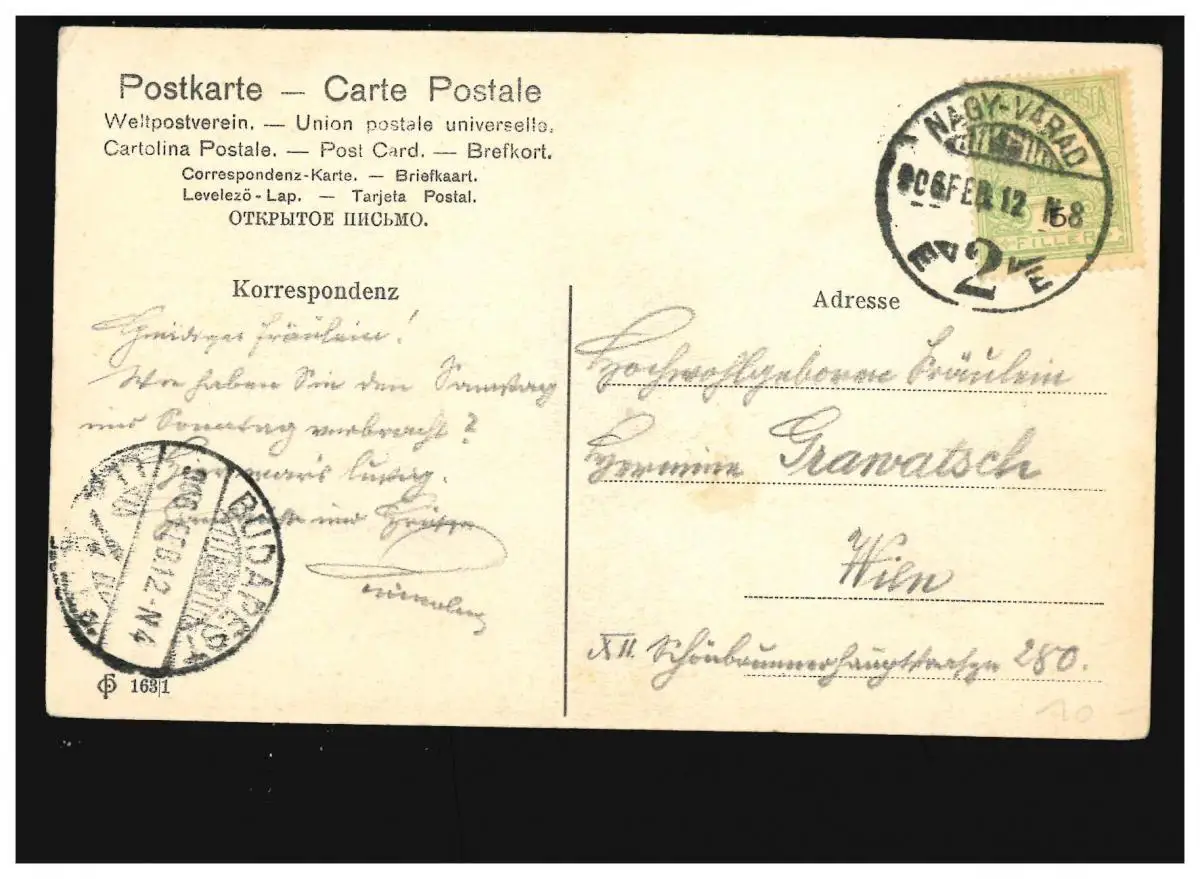 Postkarte — Carte Postale
Weltpostverein. — Union postale universelle.
Cartolina Postale. — Post Card. — Brefkort.
Correspondenz-Karte. — Briefkaart.
Levelezö-Lap. — Tarjeta Postal.
ОТКРЫТОЕ ПИСЬМО.
NAGY-VÁRAD
906 FEB. 12 N8
2
POSTA
5
FILLER
Korrespondenz
Fräulein!
Wie haben Sie den Samstag
und Sonntag verbracht?
Hier war's lustig.
und Grüße
BUDAPEST
906 FEB. 12-N4
163|1
Adresse
Hochwohlgeborne Fräulein
Hermine Grawatsch
Wien
XII. Schönbrunnerhauptstrasse 280.
10 -